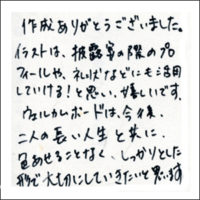 作成ありがとうございました。
イラストは、披露宴の際のプロ
フィールや、礼状などにも活用
していける!と思い、嬉しいです。
ウェルカムボードは、今後、
二人の長い人生と共に、
色あせることなく、しっかりとした
形で大切にしていきたいと思います